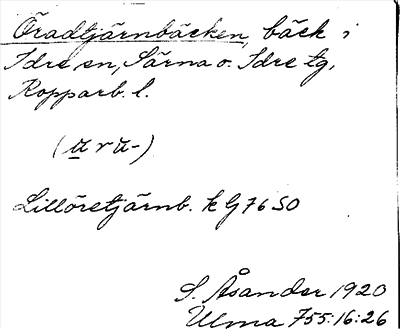 Öradtjärnbäcken, bäck i
Idre sn, Särna o. Idre tg,
Kopparb. l.
(ụ̄ r ū-)
Lillöretjärnb. k G7650
S. Åsander 1920
Ulma 755:16:26